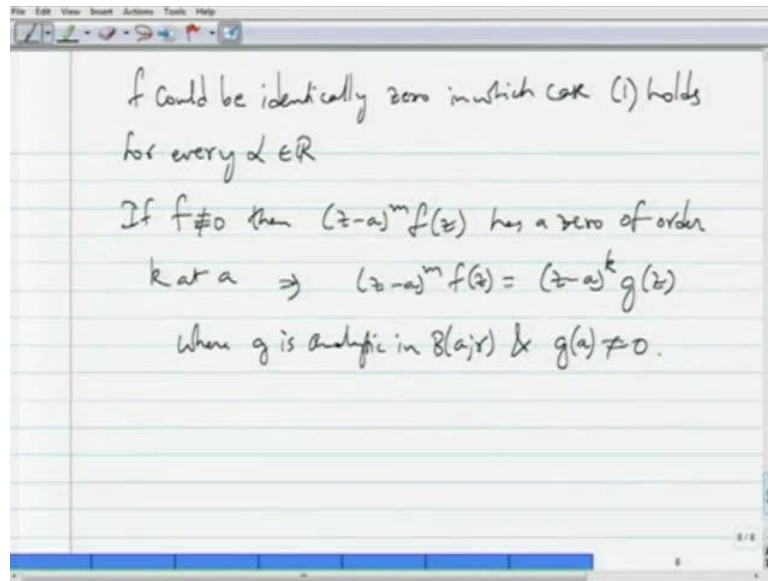 File Edit View Insert Actions Tools Help
f could be identically zero in which case (1) holds
for every α ∈ ℝ
If f ≢ 0 then (z-a)^m f(z) has a zero of order
k at a ⇒ (z-a)^m f(z) = (z-a)^k g(z)
where g is analytic in B(a;r) & g(a) ≠ 0.
8/8
8